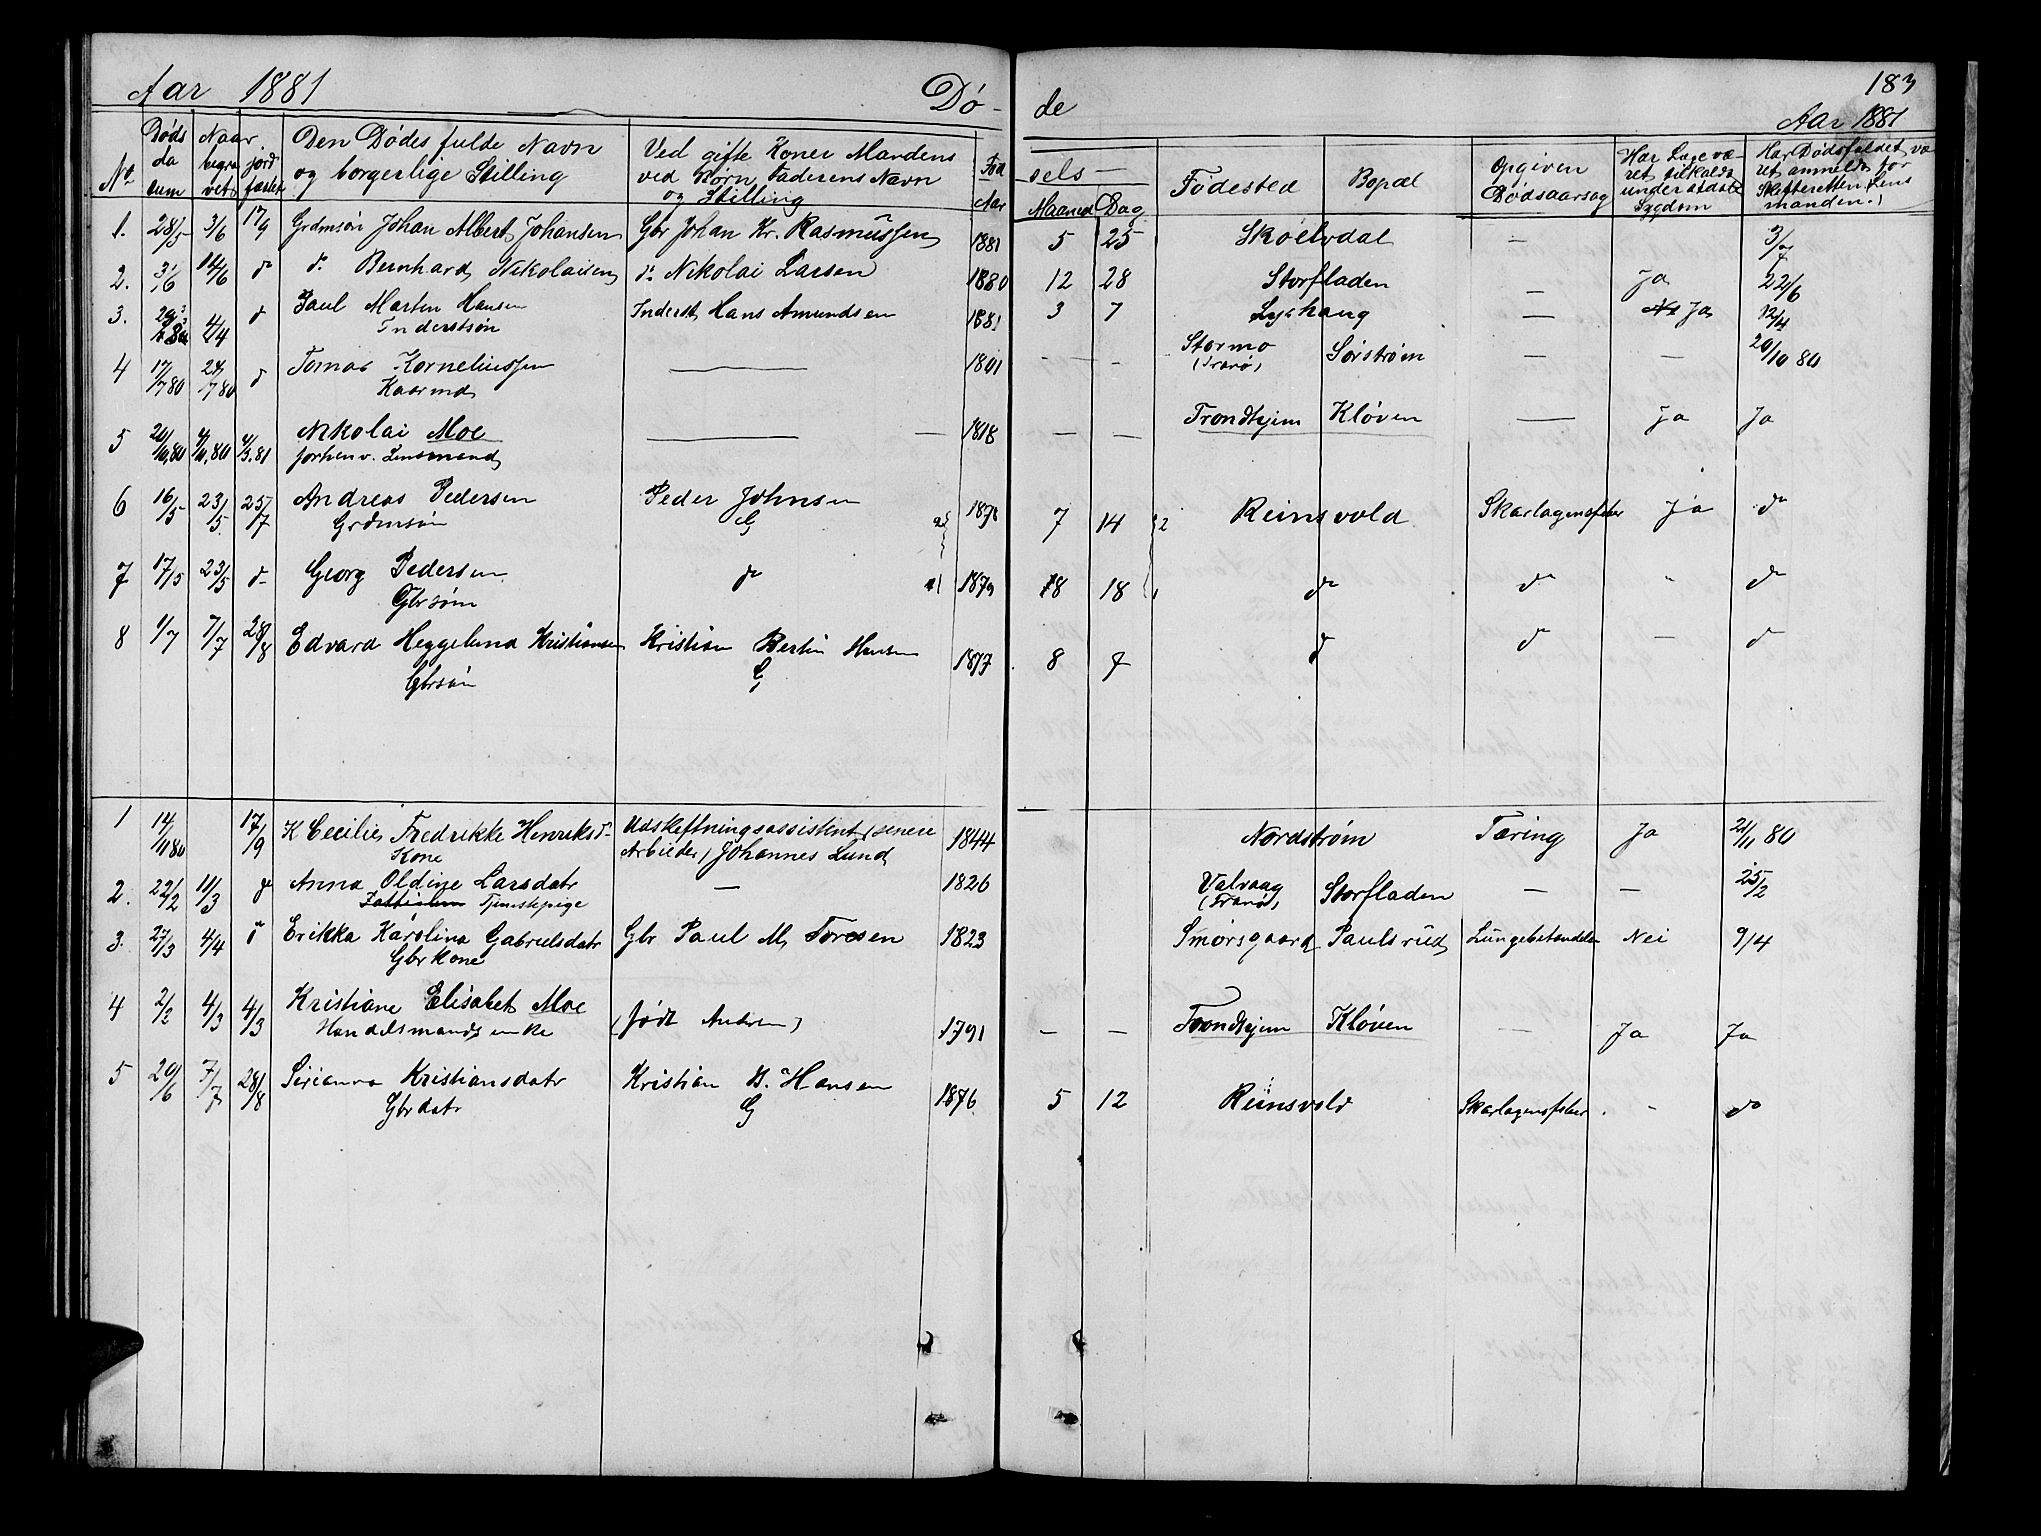 Aar 1881 Dø- de 183
Aar 1881
No Døds da tum Naar begra vet jord fæstet Den Dødes fulde Navn og borgerlige Stilling Ved gifte Koner Mandens ved Børn Faderens Navn og Stilling Fød Aar sels- Maaned Dag Fødested Bopæl Opgiven Dødsaarsag Har Læge væ- ret tilkaldt under sidste Sygdom Har Dødsfaldet væ ret anmeldt for Skifteretten (Lens manden.)
1. 28/5 3/6 17/9 Grdmsøn Johan Albert Johansen Gbr Johan Kr. Rasmussen 1881 5 25 Skoelvdal — 3/7
2. 3/6 14/6 do do Bernhard Nikolaisen do Nikolai Larsen 1880 12 28 Storfladen — Ja 22/6
3. 29/3 4/4 do Paul Marten Hansen Inderst Hans Amundsen 1881 3 7 Lyshaug — Ja 12/4
Inderstsøn
4 17/7 80 24/7 80 do Tomas Korneliussen — 1801 — - Stormo Sørstrøm — — 20/10 80
Kaarmd (Tranø)
5 20/10,80 4/11,80 4/3.81 Nikolai Moe — 1818 — — Trondhjem Kløven — Ja Ja
forhenv. Lensmand
6 16/5 23/5. 25/7 Andreas Pedersen Peder Johnsen 1878 7 14 2 Reinsvold Skarlagensfeber Ja do
Grdmsøn G
7 17/5 23/5 do Georg Pedersen do 1879 8 18 1 do do " do
Gbrsøn
8 1/7 7/7 28/8 Edvard Heggelund Kristiansen Kristian Bertin Hansen 1877 8 7 do do — do
Gbrsøn G
1 14/11 80 17/9 K Cecilie Fredrikke Henriksdr Udskiftningsassistent (senere 1844 Nordstrøm Tæring Ja 21/11 80
Kone Arbieder) Johannes Lund
2. 22/2 11/3 do Anna Oldine Larsdatr — 1826 Valvaag Storfladen — — 25/2
Tjenstepige (Tranø)
3. 27/3 4/4 do Erikka Karolina Gabrielsdatr Gbr Paul M. Toresen 1823 Smørsgaard Paulsrud Lungebetændelse Nei 9/4
Gbrkone
4 2/2 4/3 4/3 Kristiane Elisabet Moe (født Andsen) 1791 — — Trondhjem Kløven — Ja Ja
Handelsmands enke
5 20/6 7/7 28/8 Sirianna Kristiansdatr Kristian B. Hansen 1876 5 12 Reinsvold Skarlagensfeber - do
Gbrdatr G